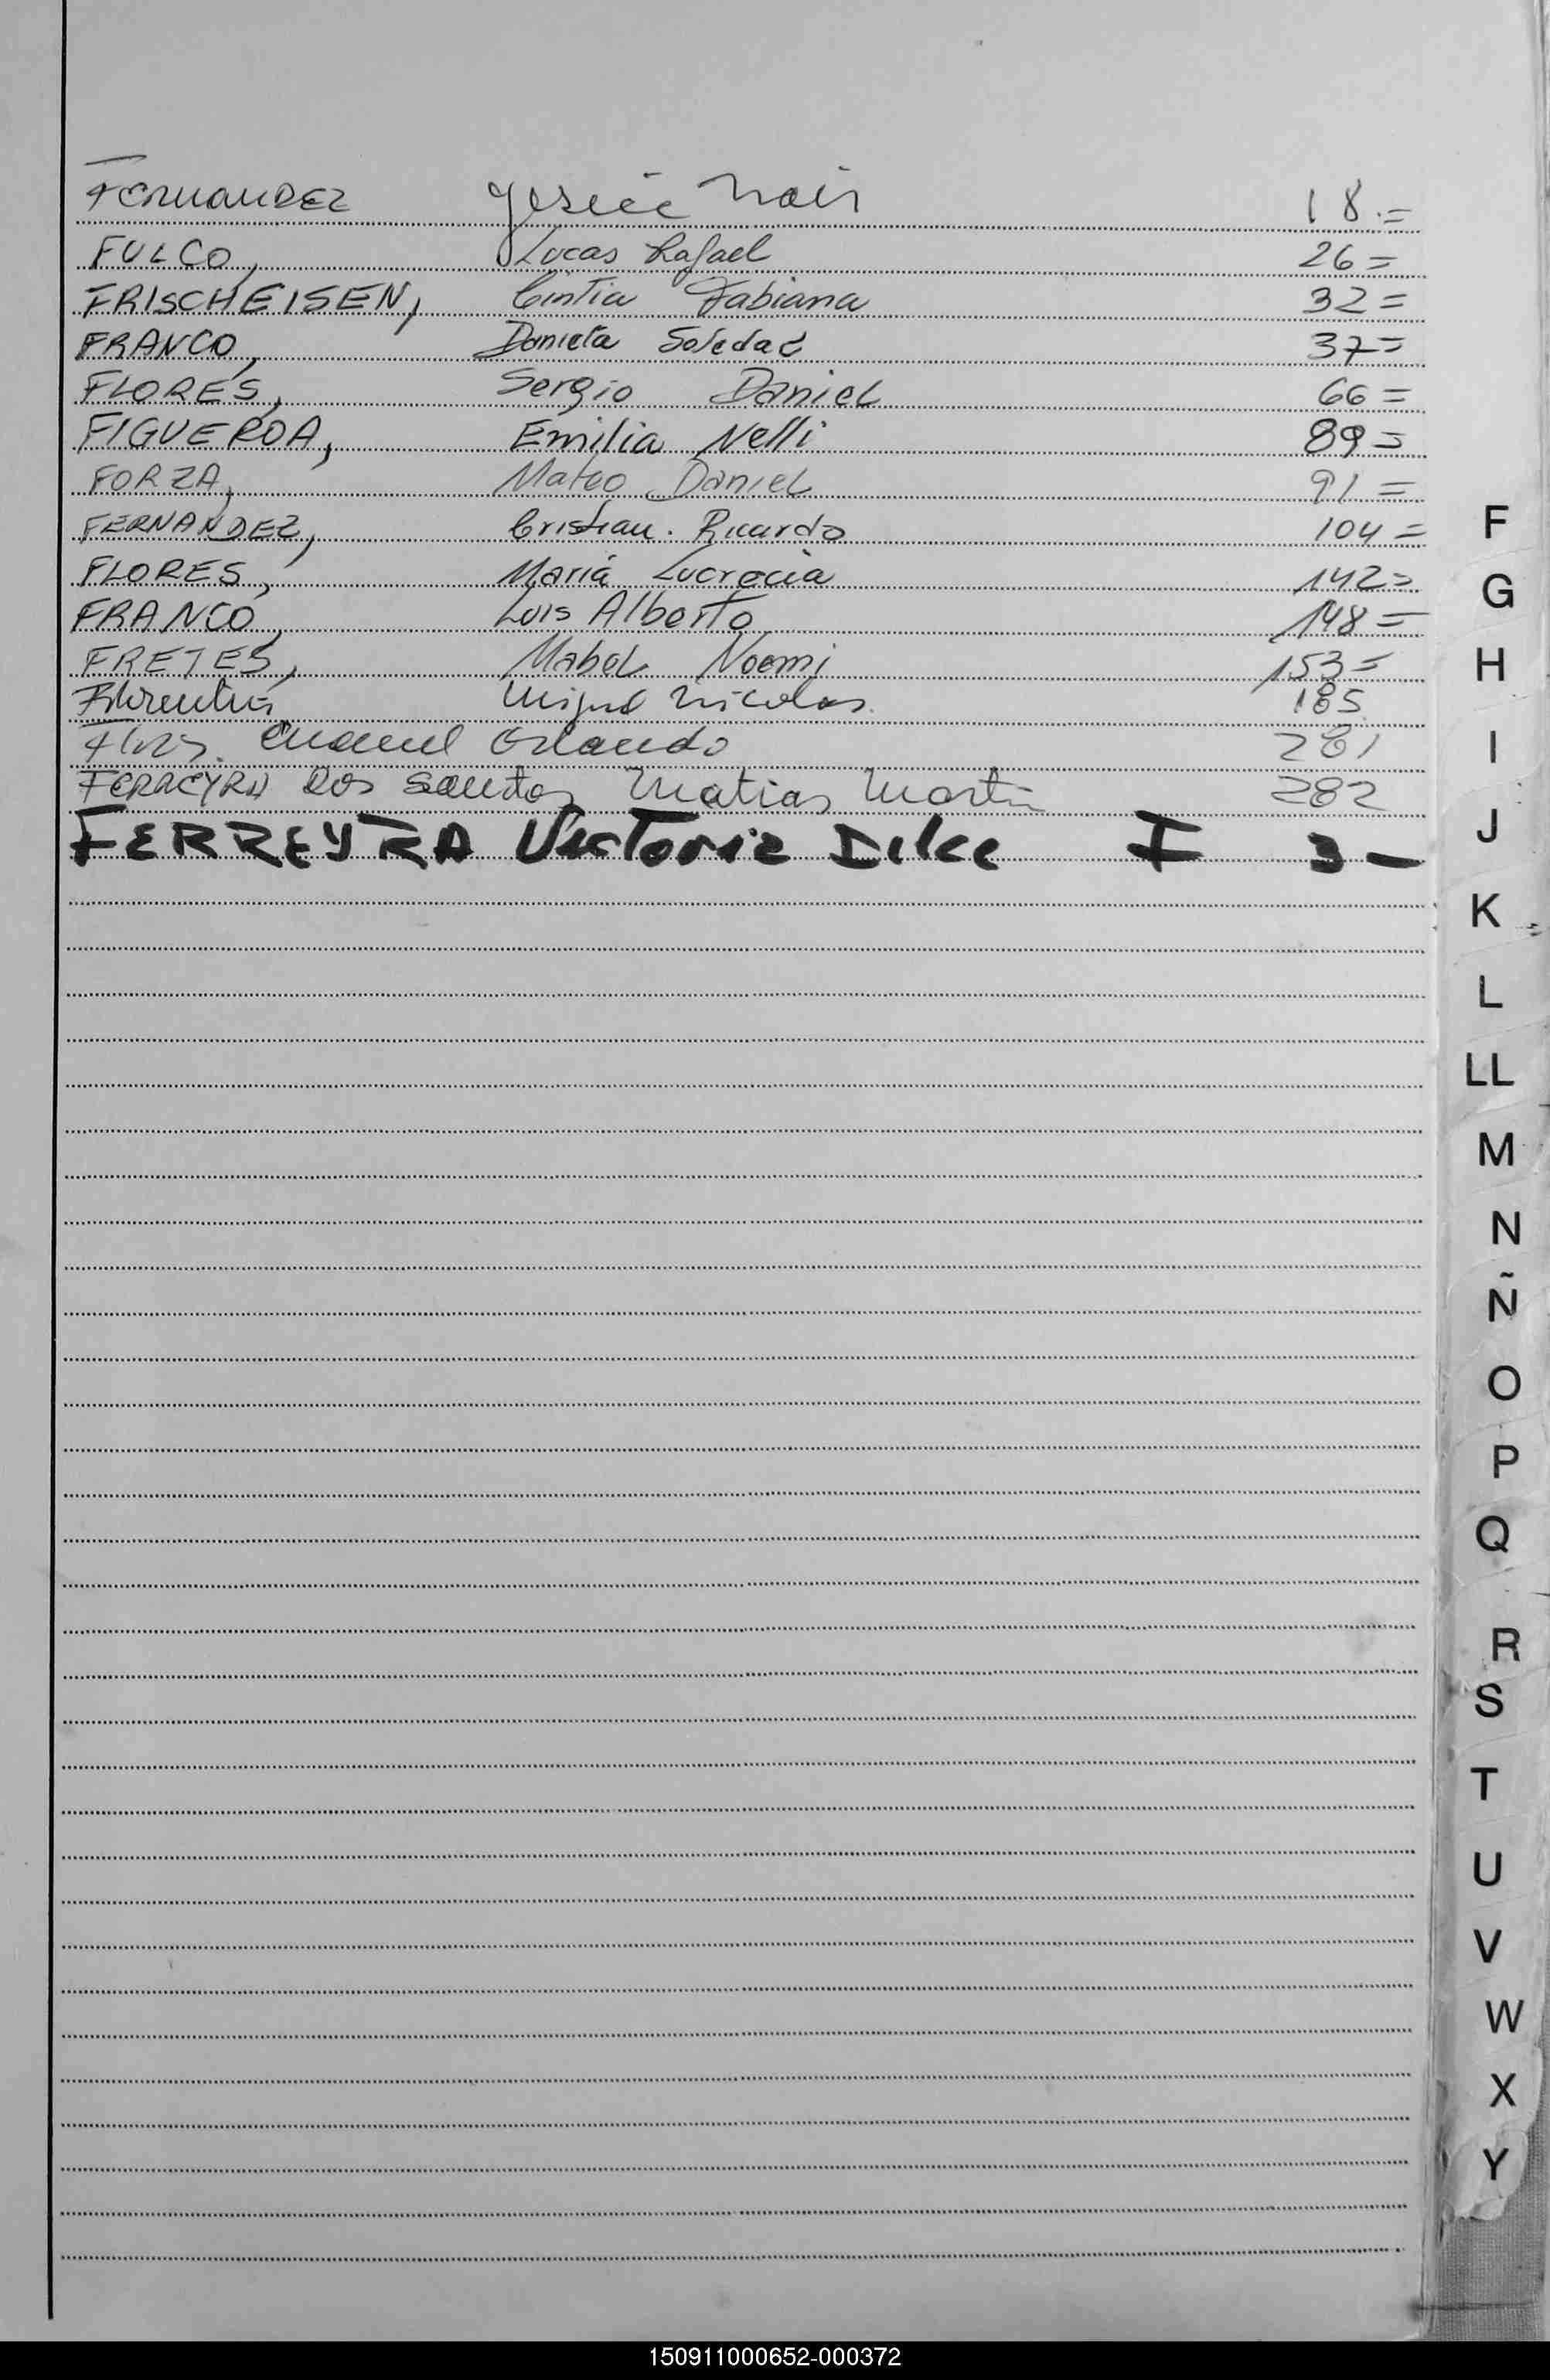 FERNANDEZ Yesica Nair 18.=
FULCO, Lucas Rafael 26=
FRISCHEISEN, Cintia Fabiana 32=
FRANCO, Daniela Soledad 37=
FLORES, Sergio Daniel 66=
FIGUEROA, Emilia Nelli 89=
FORZA, Mateo Daniel 91=
FERNANDEZ, Cristian. Ricardo 104=
FLORES, Maria Lucrecia 142=
FRANCO, Luis Alberto 148=
FRETES, Mabel Noemi 153=
Miguel Nicolas. 185
Emanuel Orlando 281
FERREYRA Dos Santos Matias Martin 282
FERREYRA Victoria Dilce I 3-
F
G
H
I
J
K
L
LL
M
N
Ñ
O
P
Q
R
S
T
U
V
W
X
Y
150911000652-000372